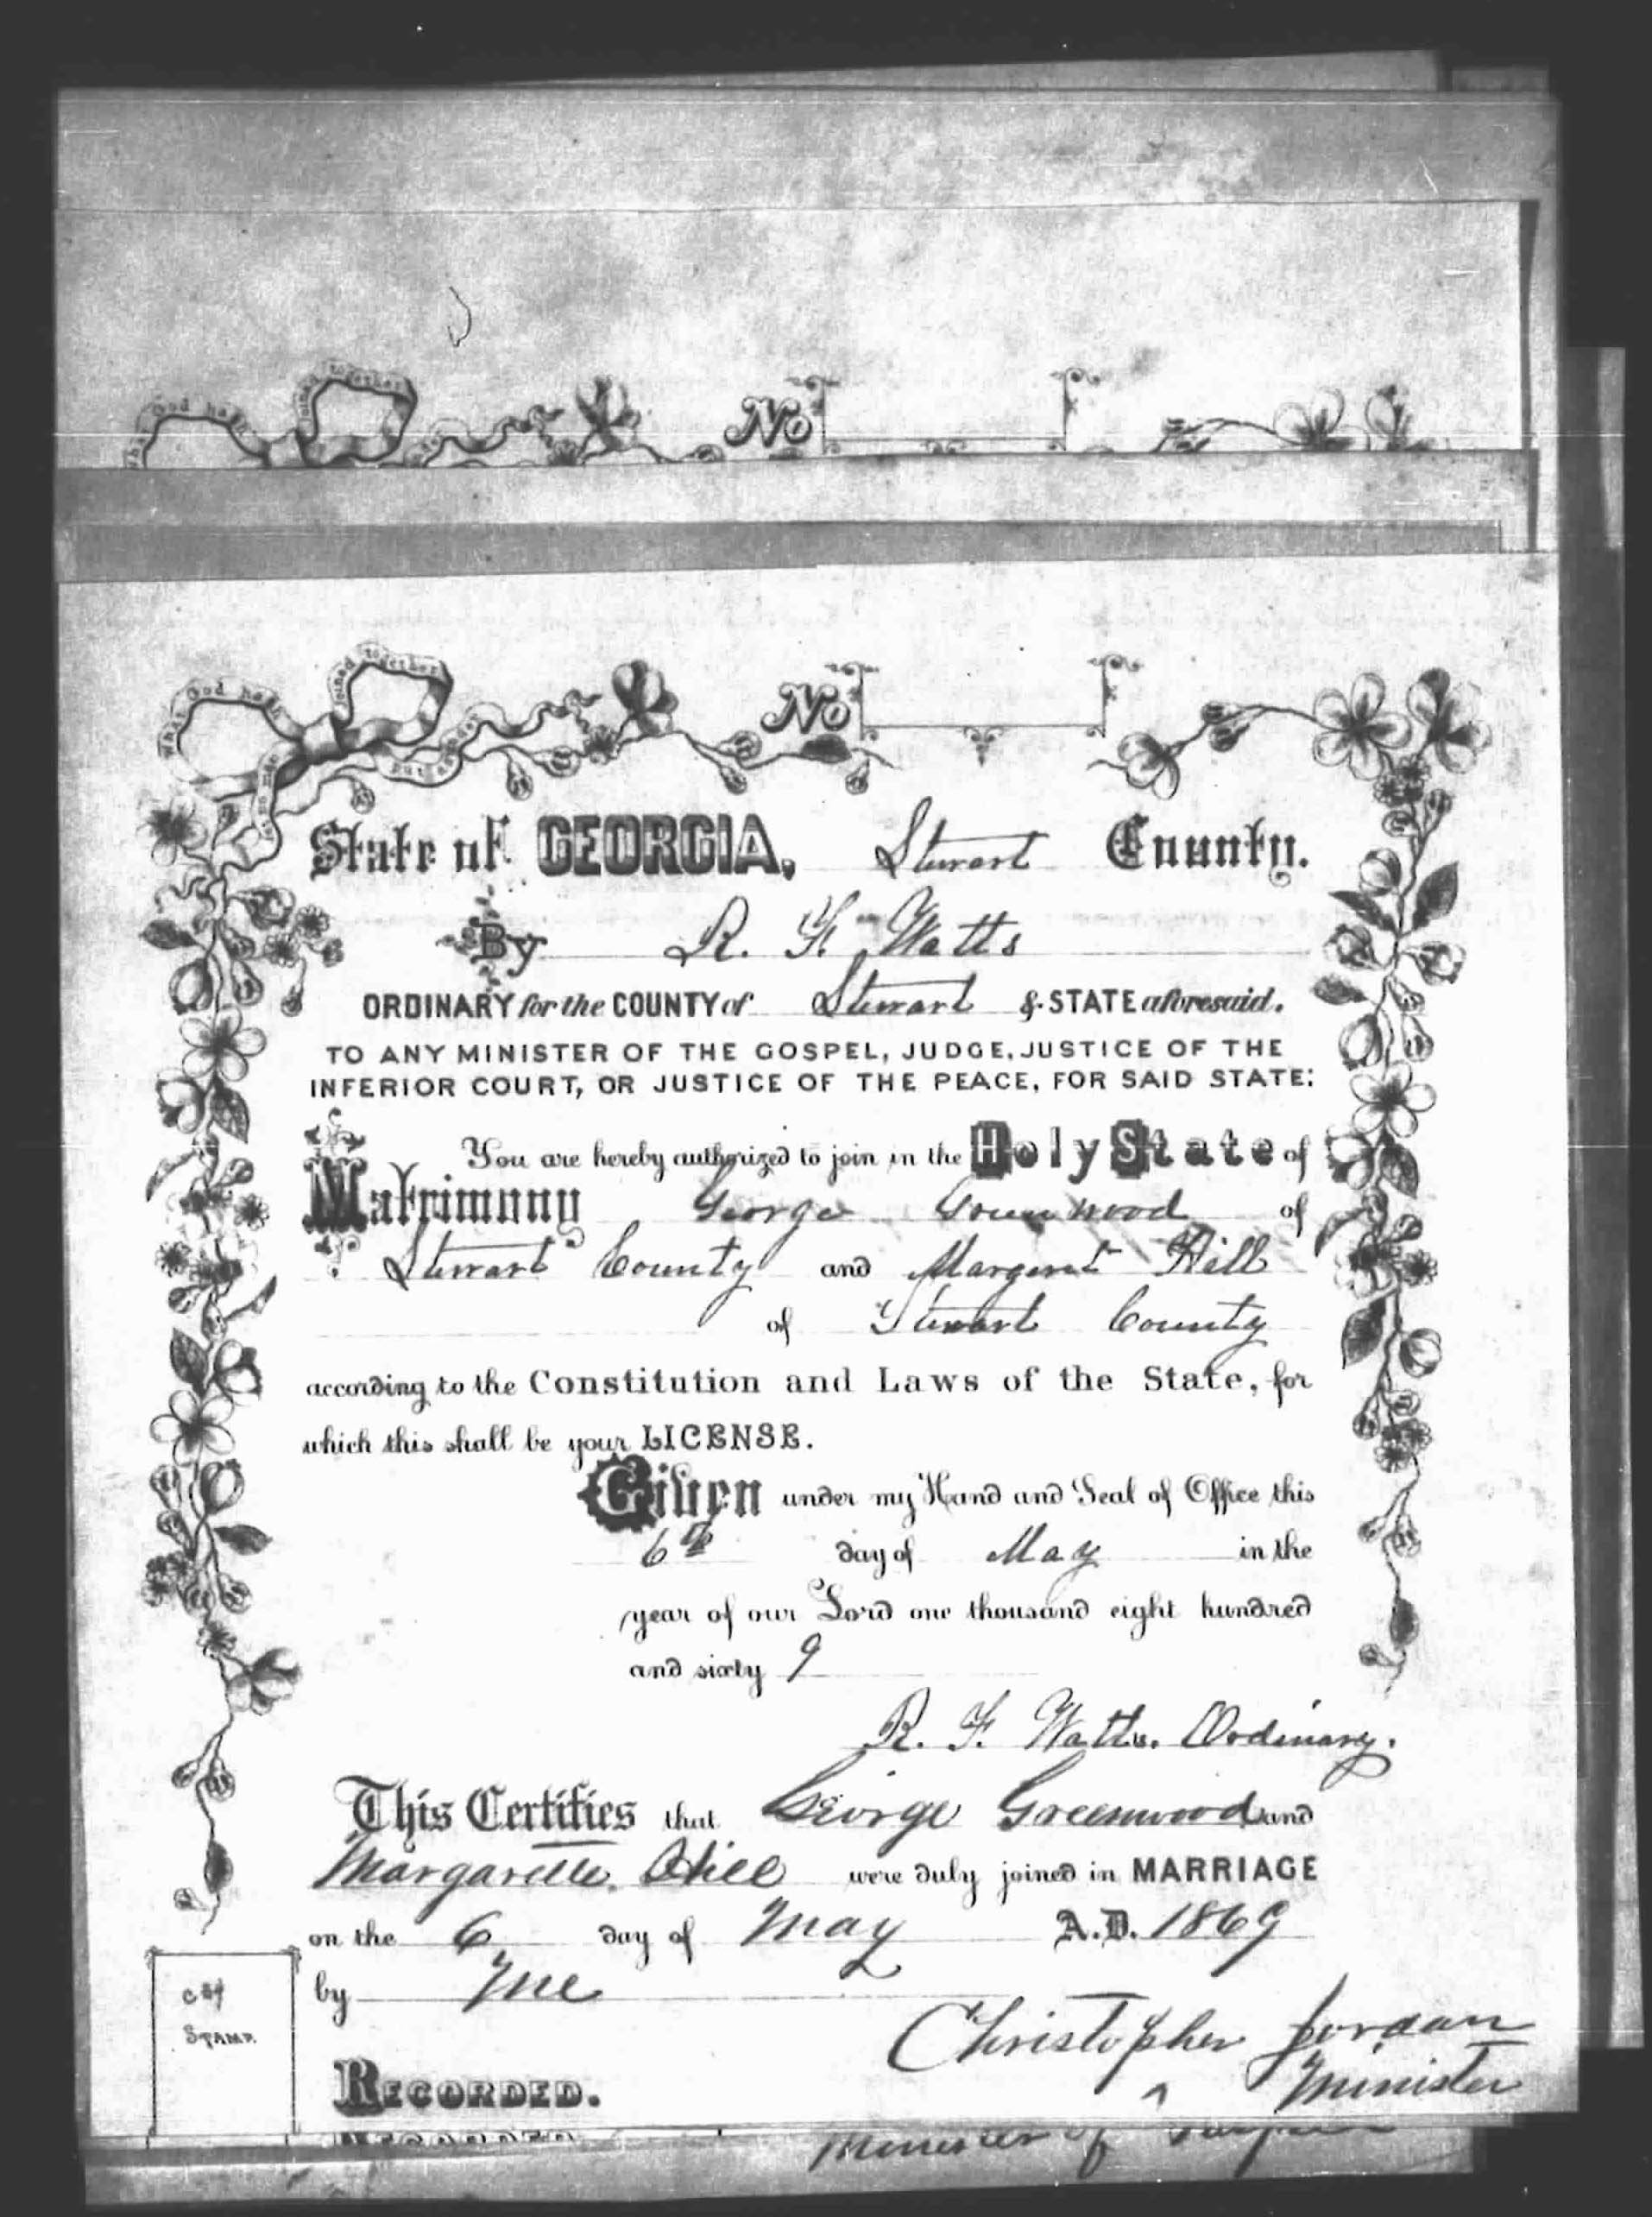 What God hath joined together
No
What God hath joined together
let no man put asunder
No
State of GEORGIA, Stewart County.
By R. F. Watts
ORDINARY for the COUNTY of Stewart & STATE aforesaid.
TO ANY MINISTER OF THE GOSPEL, JUDGE, JUSTICE OF THE
INFERIOR COURT, OR JUSTICE OF THE PEACE, FOR SAID STATE:
You are hereby authorized to join in the Holy State of
Matrimony George Greenwood of
Stewart County and Margaret Hill
of Stewart County
according to the Constitution and Laws of the State, for
which this shall be your LICENSE.
Given under my Hand and Seal of Office this
6th day of May in the
year of our Lord one thousand eight hundred
and sixty 9
R. F. Watts. Ordinary.
This Certifies that George Greenwood and
Margarette Hill were duly joined in MARRIAGE
on the 6 day of May A.D. 1869
by Me
Christopher Jordan
Minister
STAMP.
RECORDED.
RECORDED
Minister of